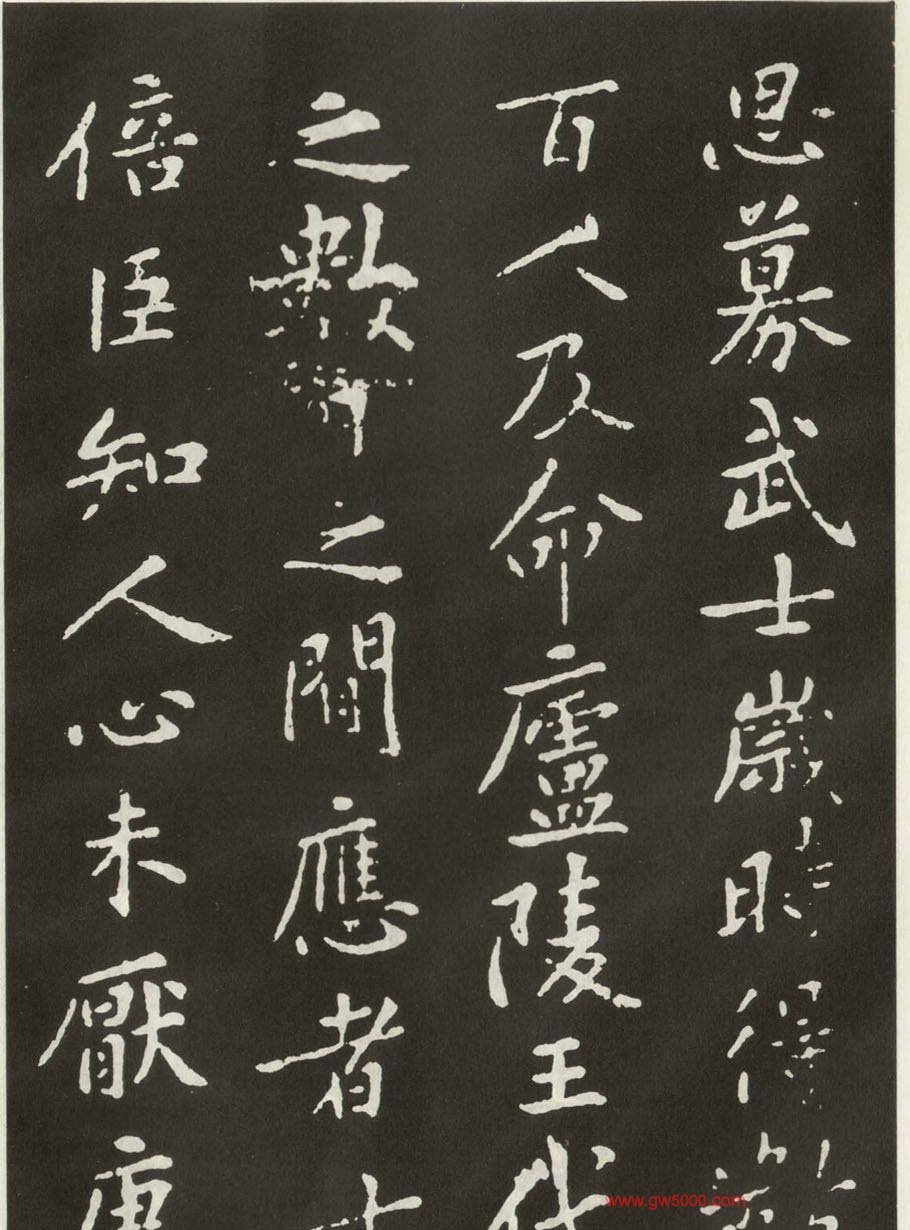 思募武士歲時得
百人及命廬陵王代
之數之間應者十
倍臣知人心未厭唐
www.gw5000.com